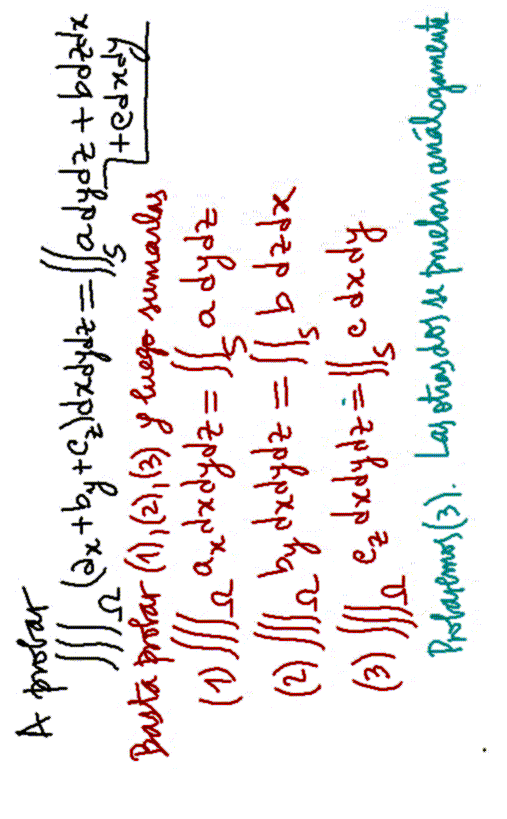 A probar
∭_Ω (a_x+b_y+c_z)dxdydz = ∬_S a dydz + b dzdx
+cdxdy
Basta probar (1),(2),(3) y luego sumarlas
(1) ∭_Ω a_x dxdydz = ∬_S a dydz
(2) ∭_Ω b_y dxdydz = ∬_S b dzdx
(3) ∭_Ω c_z dxdydz = ∬_S c dxdy
Probaremos (3). Las otras dos se prueban análogamente